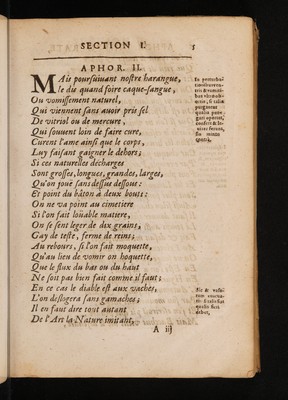 SECTION I. 5
APHOR. II.
MAis poursuivant nostre harangue,
Ie dis quand foire caque-sangue,
Ou vomissement naturel,
Qui viennent sans avoir pris sel
De vitriol ou de mercure,
Qui souvent loin de faire cure,
Curent l'ame ainsi que le corps,
Luy faisant gaigner le dehors;
Si ces naturelles décharges
Sont grosses, longues, grandes, larges,
Qu'on joüe sans dessus dessous:
Et point du bâton à deux bouts:
On ne va point au cimetiere
Si l'on fait loüable matiere,
On se sent leger de dix grains,
Gay de teste, ferme de reins;
Au rebours, si l'on fait moquette,
Qu'au lieu de vomir on hoquette,
Que le flux du bas ou du haut
Ne soit pas bien fait comme il faut;
En ce cas le diable est aux vaches,
L'on déslogera sans gamaches;
Il en faut dire tout autant
De l'Art la Nature imitant,
A iij
In perturba-
tionibus ven-
tris & vomiti-
bus